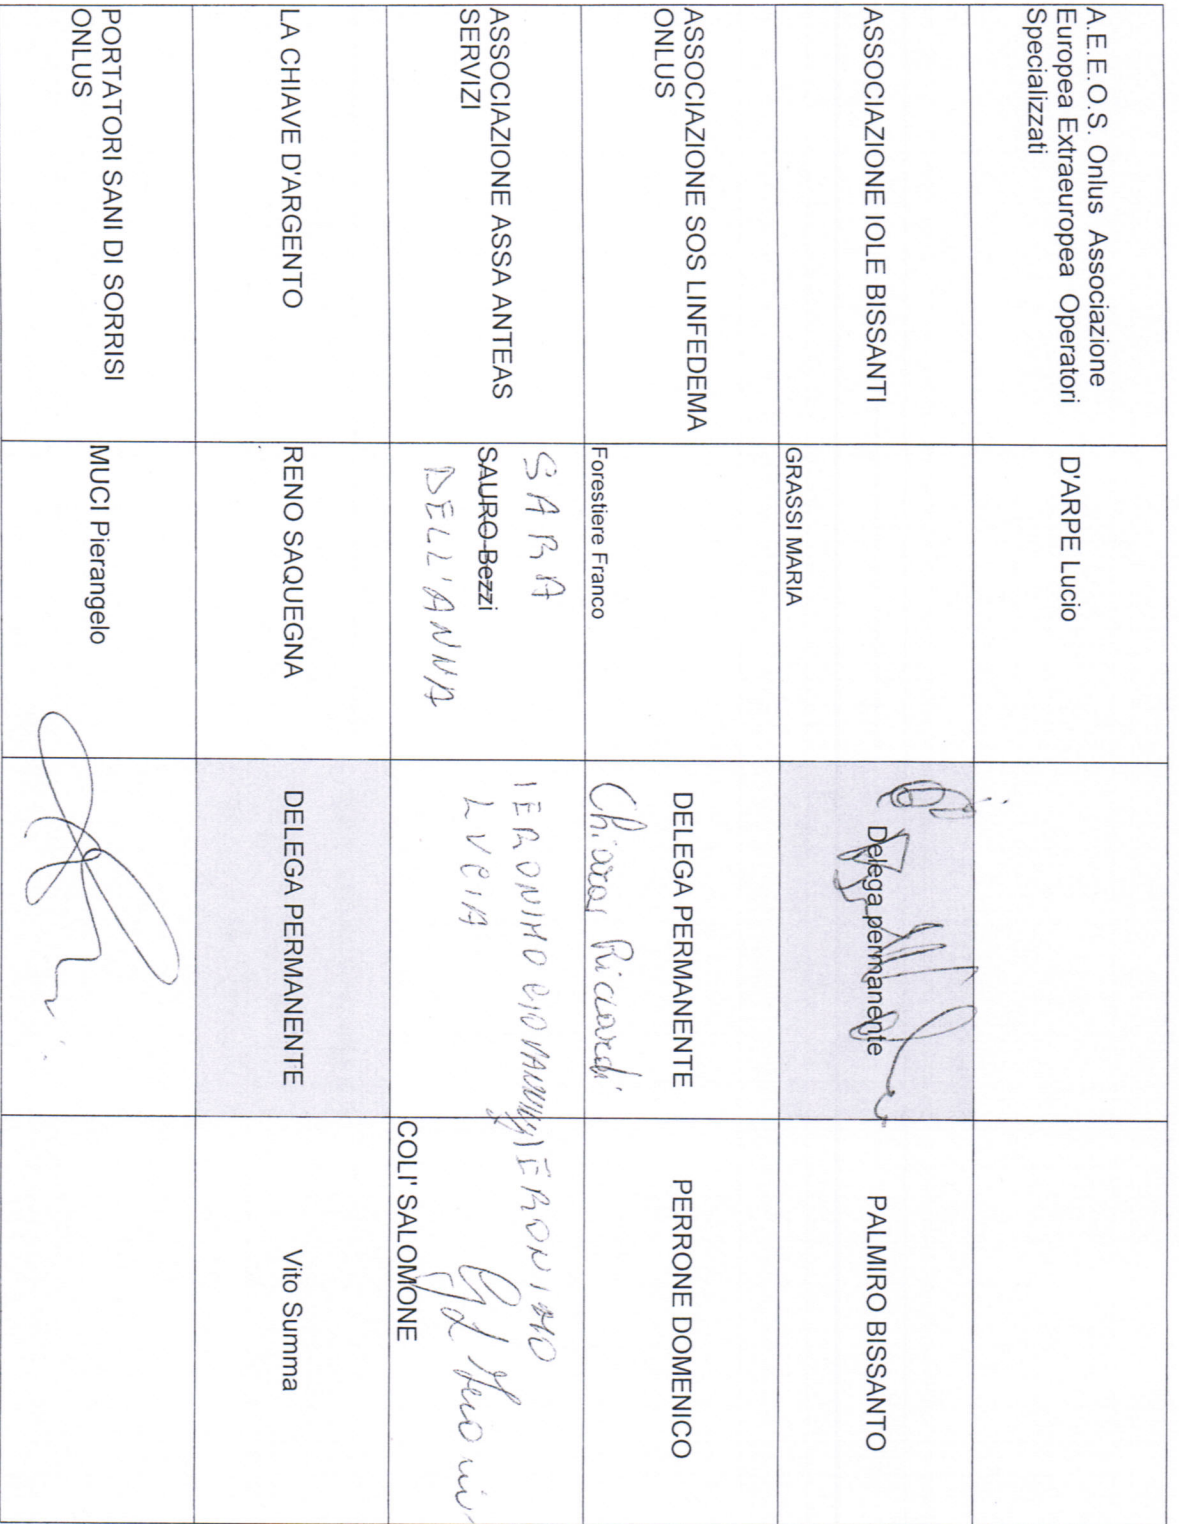 A.E.E.O.S. Onlus Associazione
Europea Extraeuropea Operatori
Specializzati
D'ARPE Lucio
ASSOCIAZIONE IOLE BISSANTI
GRASSI MARIA
Delega permanente
PALMIRO BISSANTO
ASSOCIAZIONE SOS LINFEDEMA
ONLUS
Forestiere Franco
DELEGA PERMANENTE
Chiara Ricciardi
PERRONE DOMENICO
ASSOCIAZIONE ASSA ANTEAS
SERVIZI
SARA
SAURO Bezzi
DELL'ANNA
IERONIMO
LUCIA
IERONIMO
COLI' SALOMONE
LA CHIAVE D'ARGENTO
RENO SAQUEGNA
DELEGA PERMANENTE
Vito Summa
PORTATORI SANI DI SORRISI
ONLUS
MUCI Pierangelo